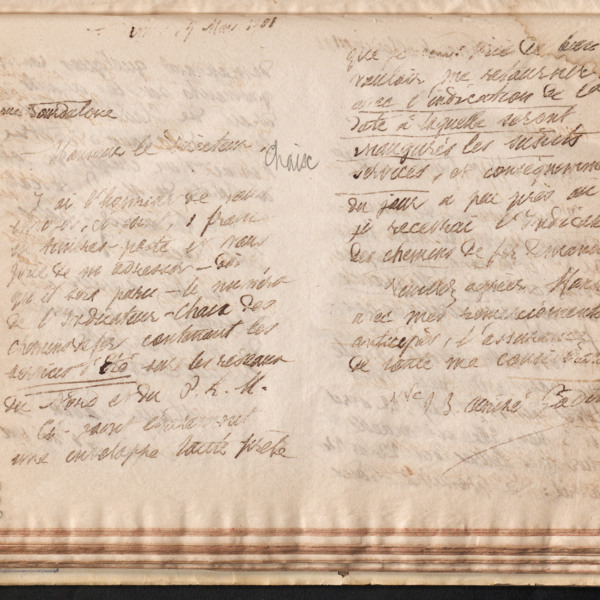 19 Mars 1901
Monsieur le Directeur
Chaix
J'ai l'honneur de vous
1 franc
en timbres-poste et vous
prie de m'adresser – dès
qu'il sera paru – le numéro
de l'Indicateur-Chaix des
chemins de fer contenant les
services d'Été sur les réseaux
du Nord et du P. L. M.
Ci-joint également
une enveloppe toute prête
que je vous prie de bien
vouloir me retourner
avec l'indication de la
date à laquelle seront
inaugurés les susdits
services, et conséquemment
du jour à peu près où
je recevrai l'Indicateur
des chemins de fer demandé
Veuillez agréer,
avec mes remerciements
anticipés, l'assurance
de toute ma considération
Vte